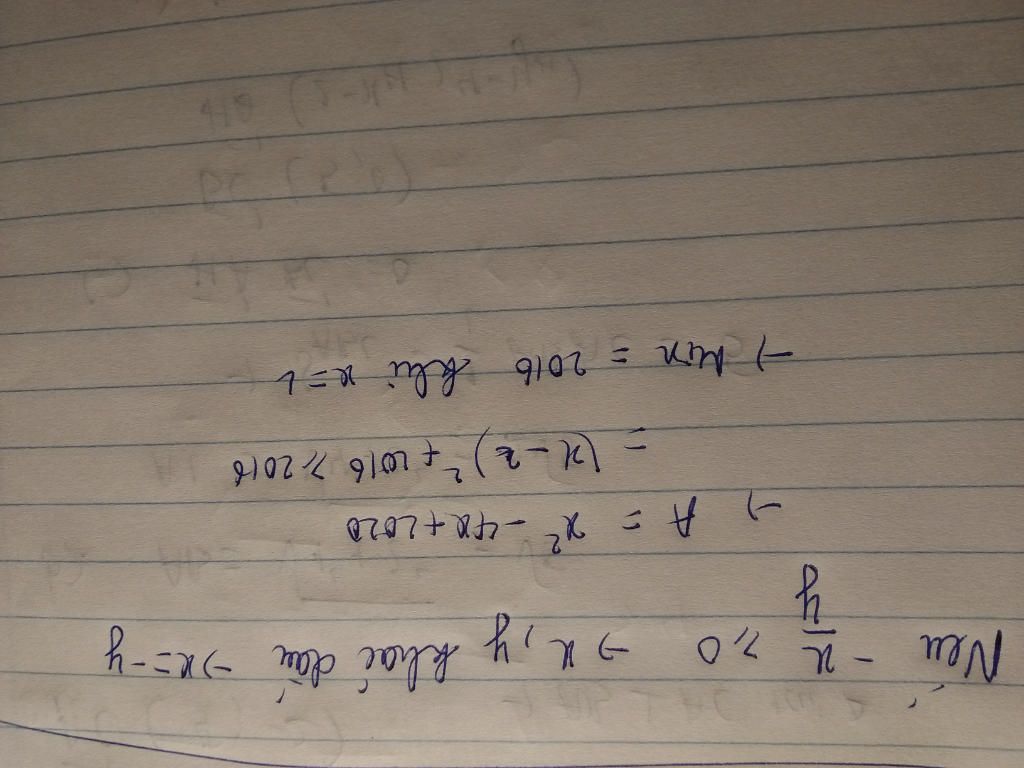 Nếu - x/y ≥ 0 → x, y khác dấu → x = -y
→ A = x² - 4x + 2020
= (x - 2)² + 2016 ≥ 2016
→ Min = 2016 khi x = 2